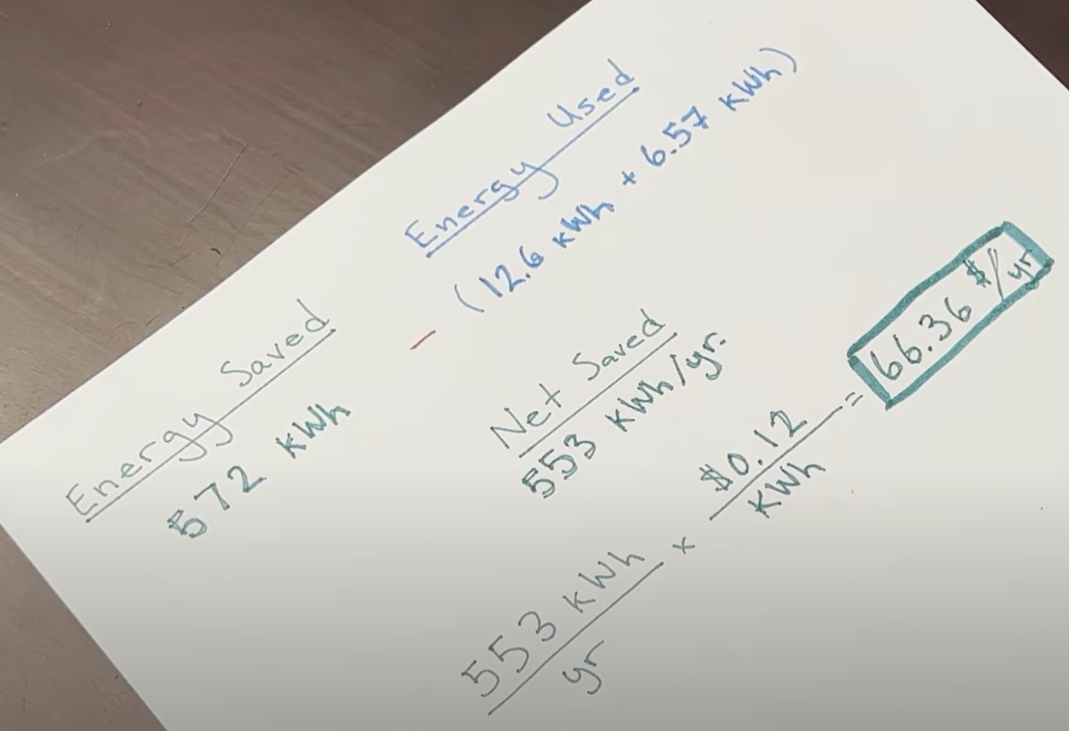 Energy Saved
572 kWh
Energy Used
- (12.6 kWh + 6.57 kWh)
Net Saved
553 kWh/yr.
553 kWh / yr x $0.12 / kWh = 66.36 $/yr